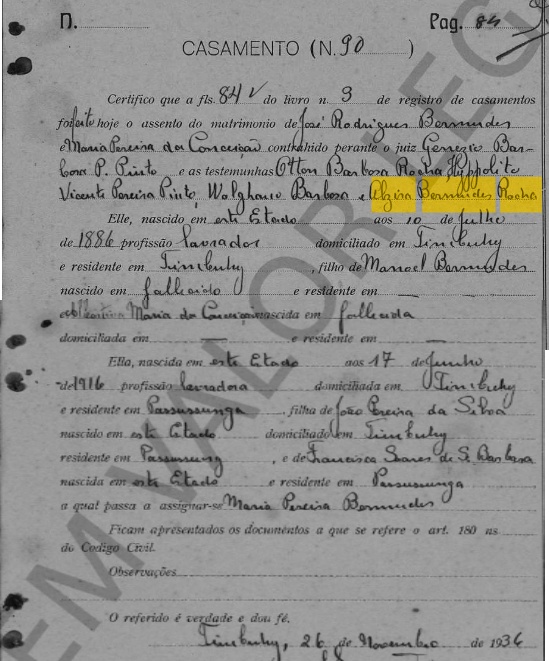 N. Pag. 84
CASAMENTO (N. 90 )
Certifico que a fls. 84 v do livro n. 3 de registro de casamentos
foi feito hoje o assento do matrimonio de José Rodrigues Bermudes
e Maria Pereira da Conceição contrahido perante o juiz Genezio Bar-
bosa P. Pinto e as testemunhas Otton Barbosa Rocha, Hyppolito
Vicente Pereira Pinto, Wolghano Barbosa e Alzira Bermudes Rocha
Elle, nascido em este Estado aos 10 de Julho
de 1886 profissão lavrador domiciliado em Timbuhy
e residente em Timbuhy , filho de Manoel Bermudes
nascido em fallecido e residente em —
e Maria da Conceição nascida em fallecida
domiciliada em — e residente em —
Ella, nascida em este Estado aos 17 de Junho
de 1916 profissão lavradora domiciliada em Timbuhy
e residente em Passusunga , filha de João Pereira da Silva
nascido em este Estado domiciliado em Timbuhy
residente em Passusung , e de Francisca Soares de S. Barbosa
nascida em este Estado e residente em Passusunga
a qual passa a assignar-se Maria Pereira Bermudes
Ficam apresentados os documentos a que se refere o art. 180 ns
do Codigo Civil.
Observações
O referido é verdade e dou fé.
Timbuhy, 26 de Novembro de 1936
SEM VALOR LEG